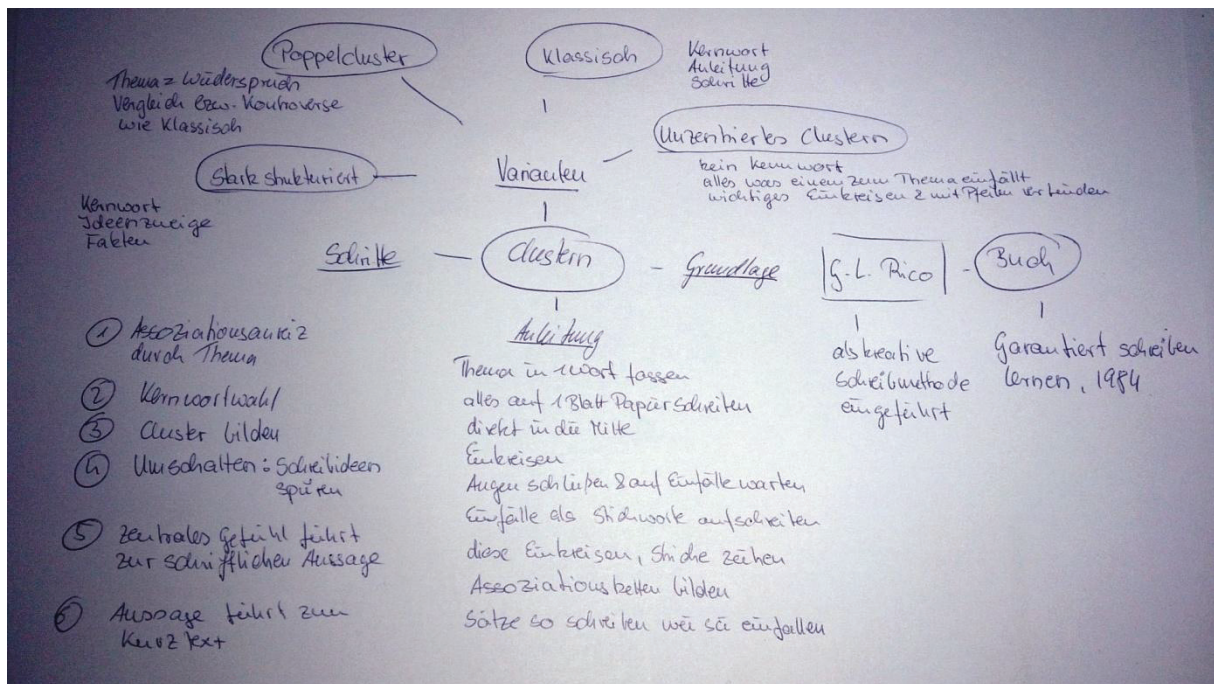 Doppelcluster
Thema = Widerspruch
Vergleich bzw. Kontroverse
wie klassisch
Klassisch
Kernwort
Anleitung
Schritte
Unzentriertes Clustern
kein Kernwort
alles was einem zum Thema einfällt
wichtiges Einkreisen & mit Pfeilen verbinden
Stark strukturiert
Kernwort
Ideenzweige
Fakten
Varianten
Schritte
Clustern
Grundlage
G.-L. Rico
Buch
als kreative
Schreibmethode
eingeführt
Garantiert schreiben
lernen, 1984
① Assoziationsanreiz
durch Thema
② Kernwortwahl
③ Cluster bilden
④ Umschalten: Schreibideen
spüren
⑤ zentrales Gefühl führt
zur schriftlichen Aussage
⑥ Aussage führt zum
Kurztext
Anleitung
Thema in 1 Wort fassen
alles auf 1 Blatt Papier schreiben
direkt in die Mitte
Einkreisen
Augen schließen & auf Einfälle warten
Einfälle als Stichworte aufschreiben
diese Einkreisen, Striche ziehen
Assoziationsketten bilden
Sätze so schreiben wie sie einfallen